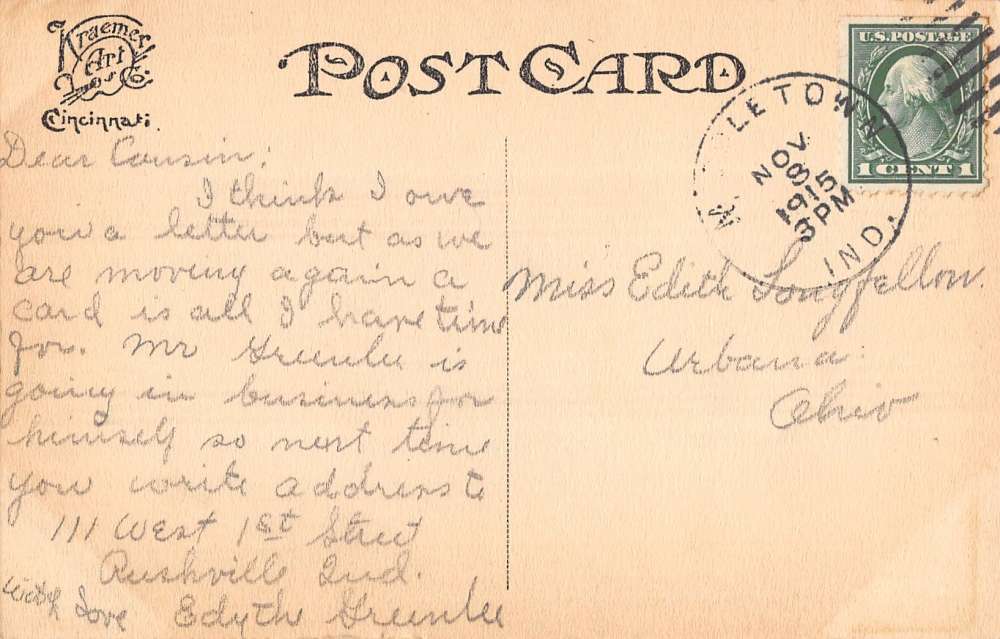 Kraemer
Art
Co.
Cincinnati.
POST CARD
U.S. POSTAGE
1 CENT 1
LETOWN
NOV
8
1915
3 PM
IND.
Dear Cousin:
I think I owe
you a letter but as we
are moving again a
card is all I have time
for. Mr Greenlee is
going in business for
himself so next time
you write address to
111 West 1st Street
Rushville Ind.
With Love Edythe Greenlee
Miss Edith Longfellow.
Urbana
Ohio